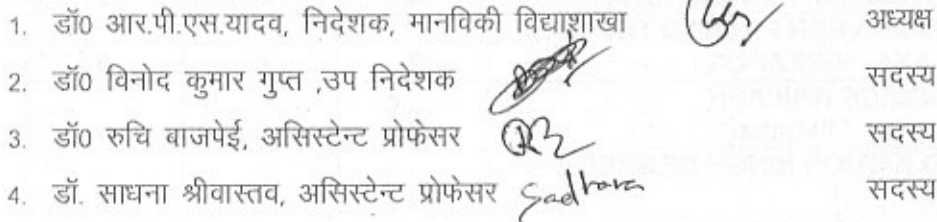 1. डॉ0 आर.पी.एस.यादव, निदेशक, मानविकी विद्याशाखा अध्यक्ष
2. डॉ0 विनोद कुमार गुप्त ,उप निदेशक सदस्य
3. डॉ0 रुचि बाजपेई, असिस्टेन्ट प्रोफेसर सदस्य
4. डॉ. साधना श्रीवास्तव, असिस्टेन्ट प्रोफेसर Sadhana सदस्य